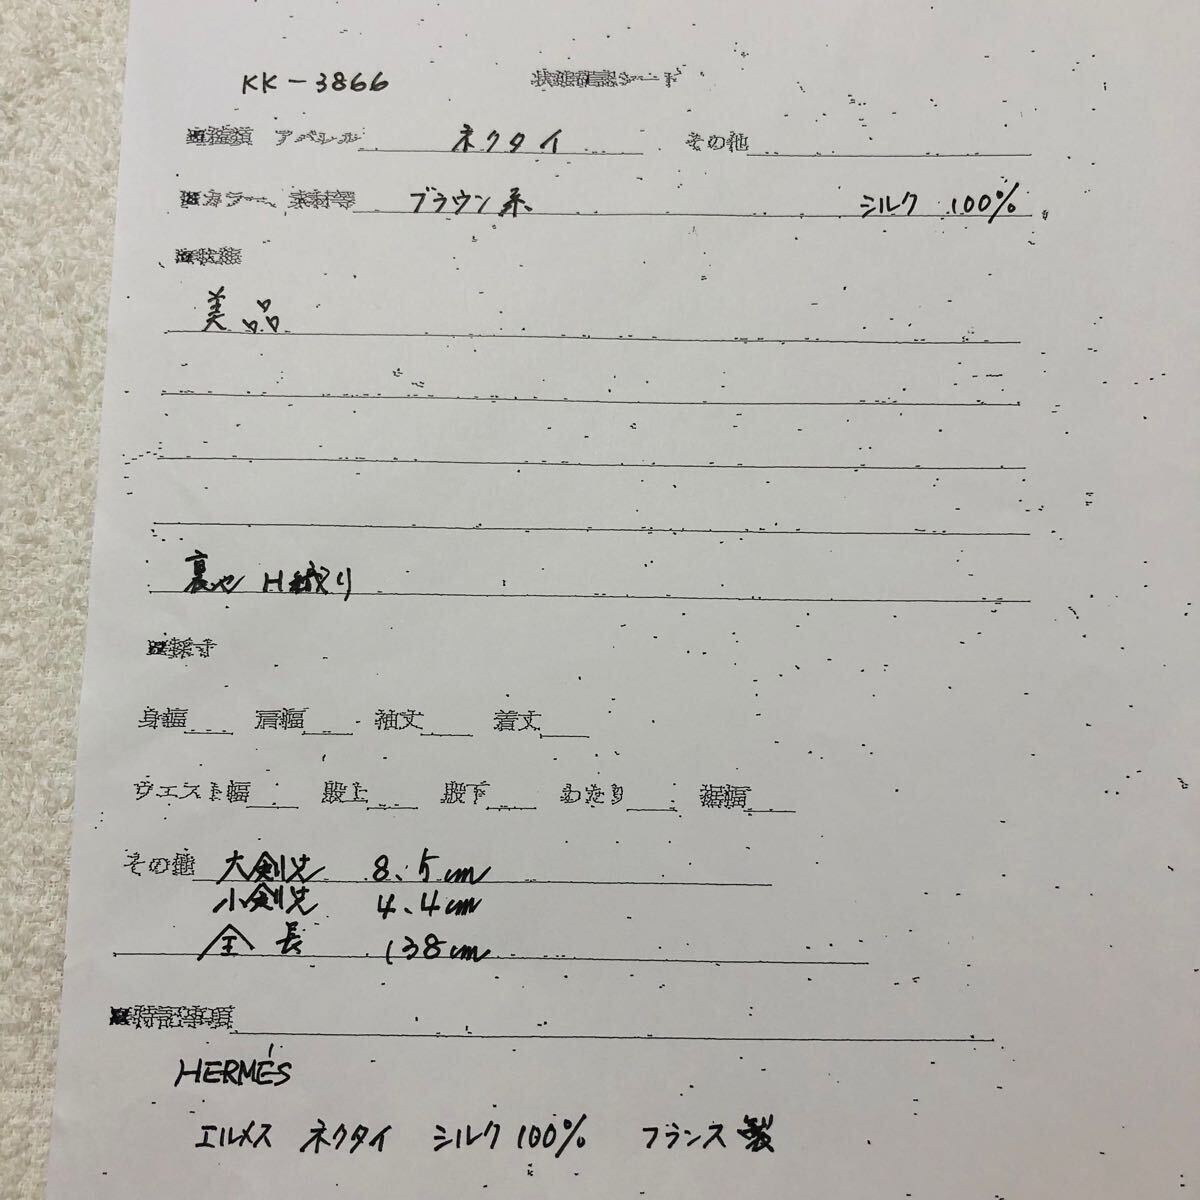 KK-3866 状態確認シート
■種類 アパレル ネクタイ その他
■カラー、素材等 ブラウン系 シルク 100%
■状態
美品
裏地 H織り
■採寸
身幅 肩幅 袖丈 着丈
ウエスト幅 股上 股下 わたり 裾幅
その他 大剣先 8.5cm
小剣先 4.4cm
全長 138cm
■特記事項
HERMÉS
エルメス ネクタイ シルク100% フランス製